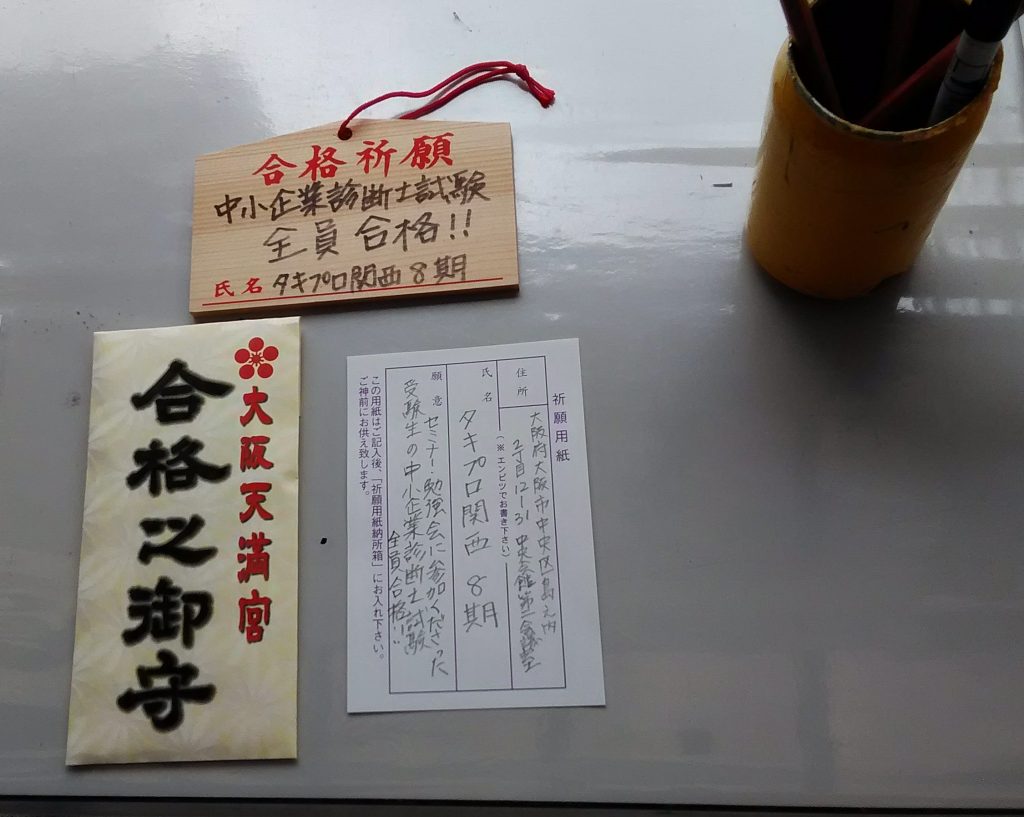 合格祈願
中小企業診断士試験
全員合格!!
氏名 タキプロ関西8期
大阪天満宮
合格之御守
祈願用紙
住所
大阪府大阪市中央区島之内
2丁目12-31 中央会館第一会議室
(※エンピツでお書き下さい)
氏名
タキプロ関西 8期
願意
セミナー・勉強会に参加くださった
受験生の中小企業診断士試験
全員合格!!
この用紙はご記入後、「祈願用紙納所箱」にお入れ下さい。
ご神前にお供え致します。